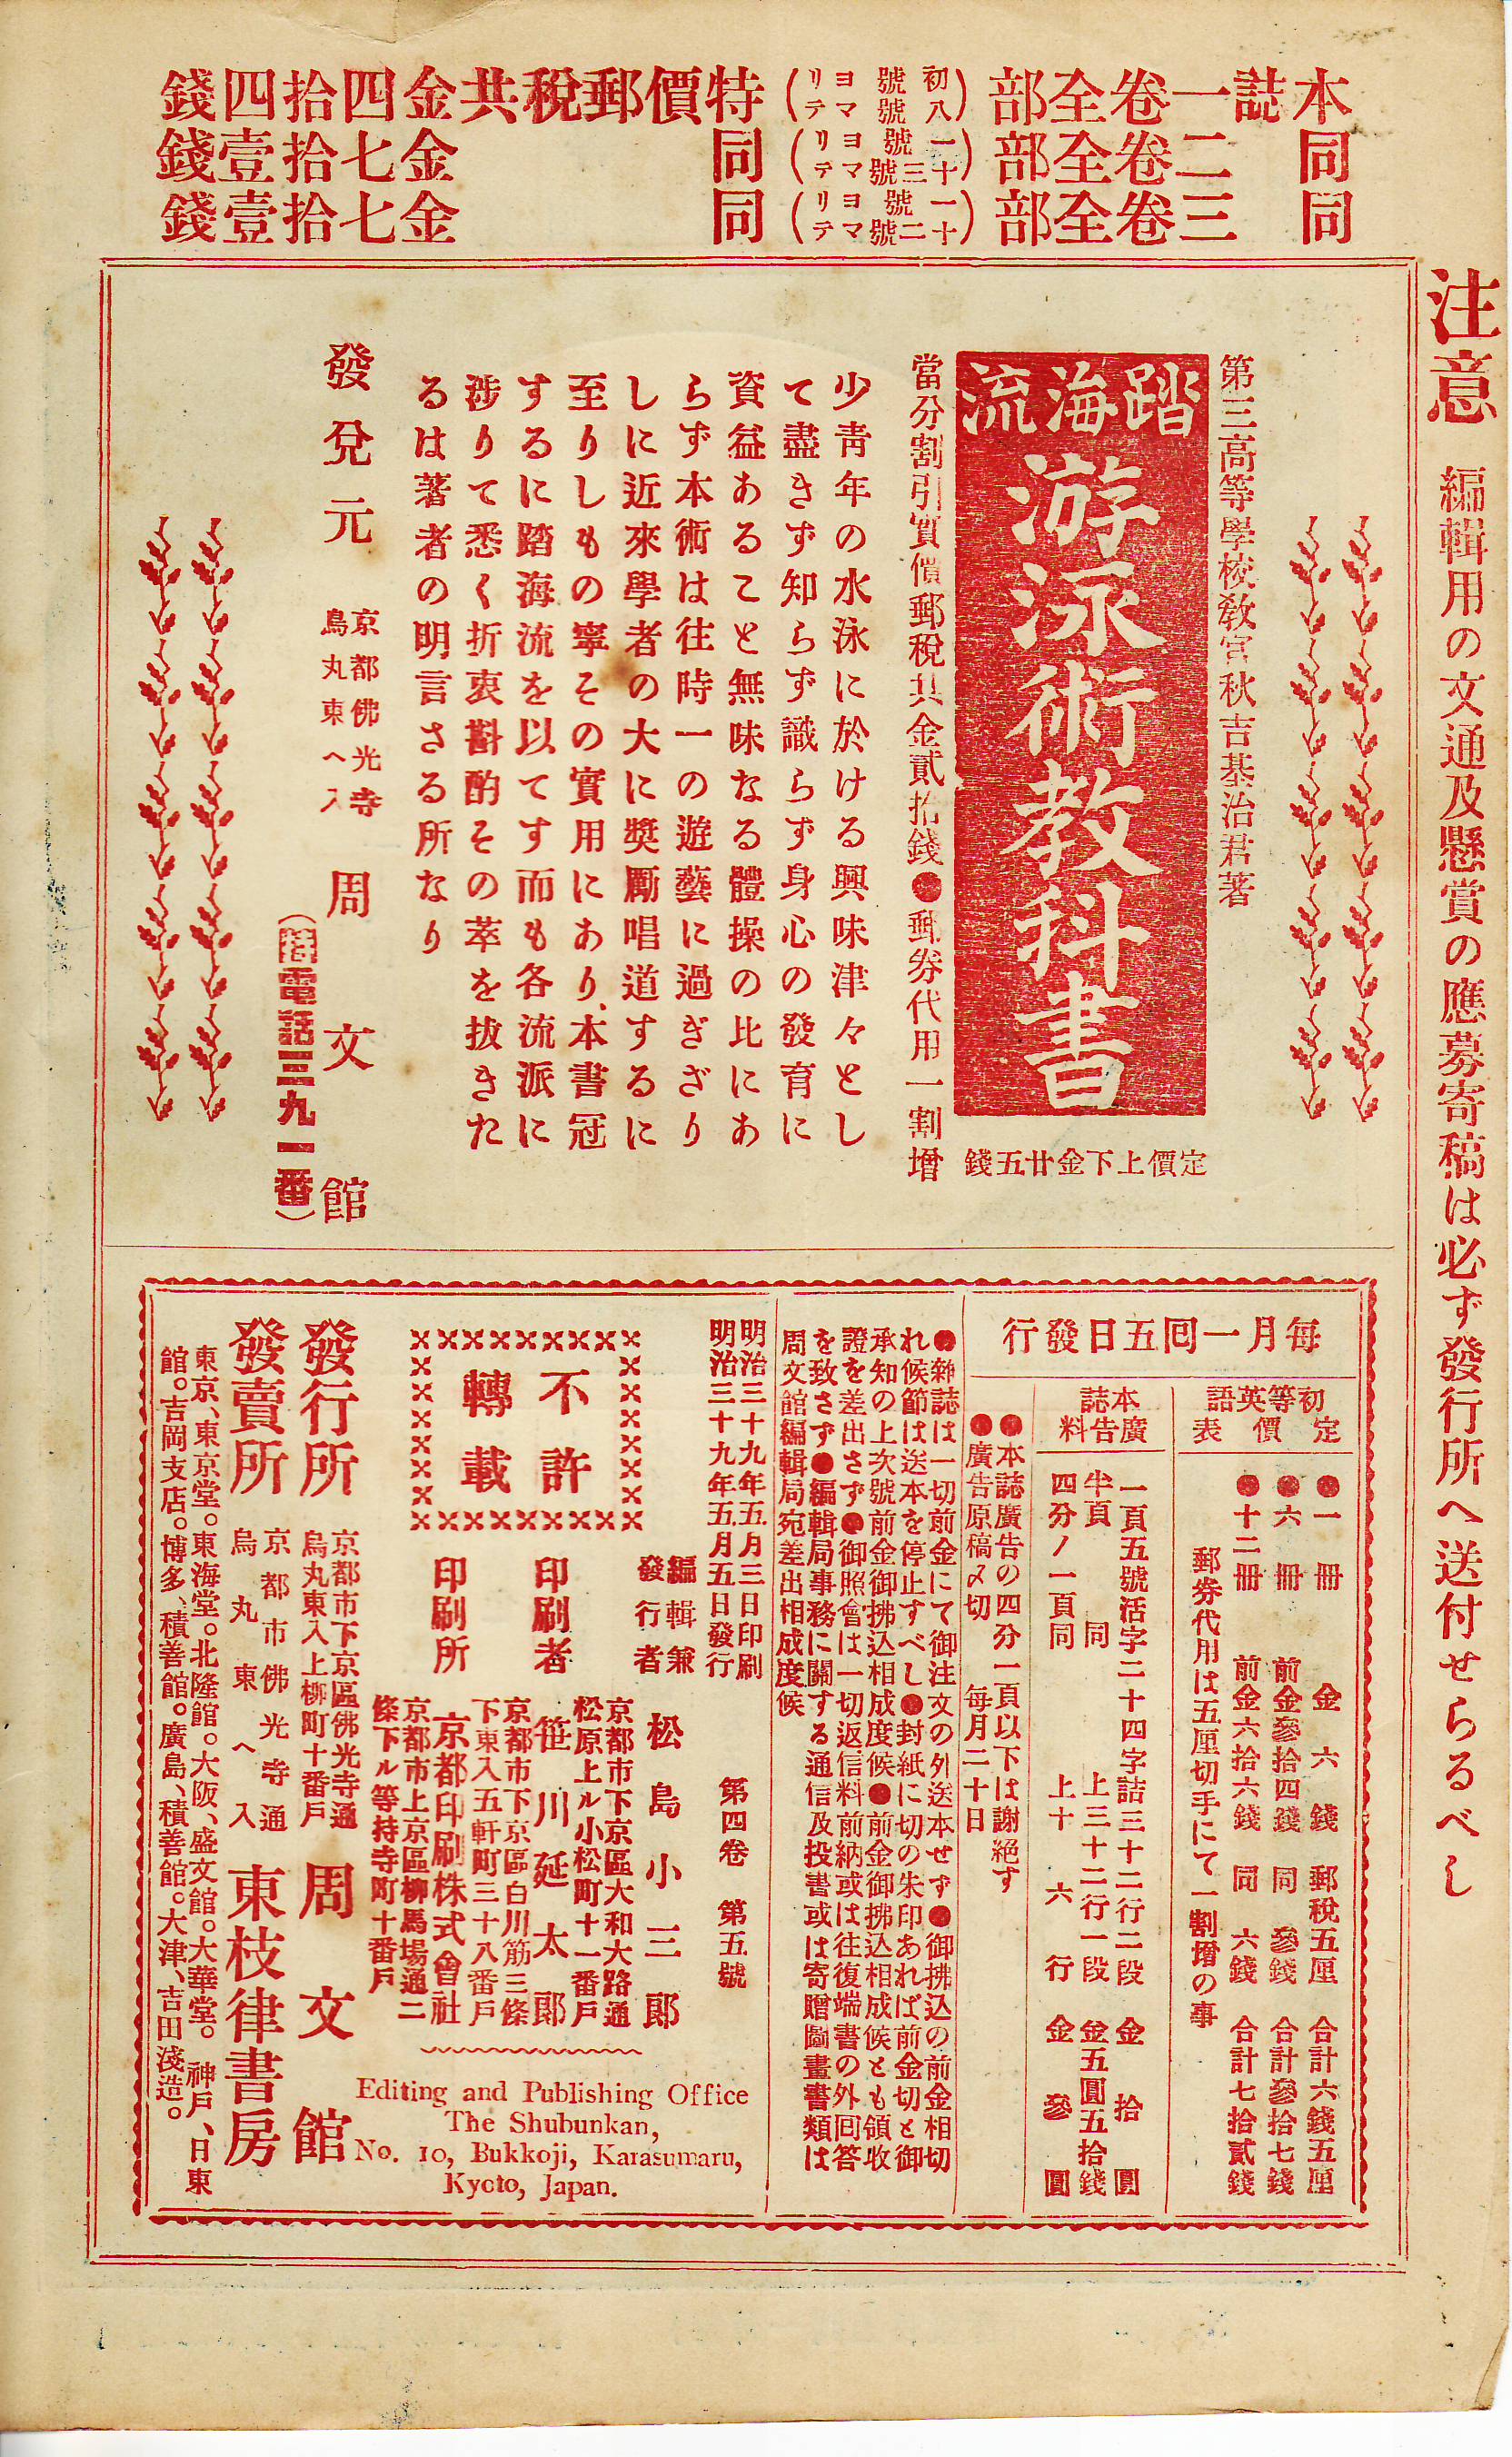 本誌一卷全部（初號ヨリ八號マテ）特價郵税共金四拾四錢
同二卷全部（一號ヨリ十三號マテ）同金七拾壹錢
同三卷全部（一號ヨリ十二號マテ）同金七拾壹錢
注意 編輯用の文通及懸賞の應募寄稿は必ず發行所へ送付せらるべし
第三高等學校教官秋吉基治君著
踏海流
游泳術教科書
定價上下金廿五錢
當分割引實價郵税共金貳拾錢●郵券代用一割增
少靑年の水泳に於ける興味津々とし
て盡きず知らず識らず身心の發育に
資益あること無味なる體操の比にあ
らず本術は往時一の遊藝に過ぎざり
しに近來學者の大に奬勵唱道するに
至りしもの寧その實用にあり、本書冠
するに踏海流を以てす而も各流派に
涉りて悉く折衷斟酌その萃を抜きた
るは著者の明言さる所なり
發兌元
京都佛光寺
烏丸東へ入
周文館
（特電話三九一番）
每月一回五日發行
初等英語
定價表
●一冊 金六錢 郵税五厘 合計六錢五厘
●六冊 前金參拾四錢 同參錢 合計參拾七錢
●十二冊 前金六拾六錢 同六錢 合計七拾貳錢
郵券代用は五厘切手にて一割增の事
本誌
廣告料
一頁五號活字二十四字詰三十二行二段 金拾圓
半頁 同 上三十二行一段 金五圓五拾錢
四分ノ一頁同 上十六行 金參圓
●本誌廣告の四分一頁以下は謝絕す
●廣告原稿〆切 每月二十日
●雜誌は一切前金にて御注文の外送本せず●御拂込の前金相切
れ候節は送本を停止すべし●封紙に切の朱印あれば前金切と御
承知の上次號前金御拂込相成度候●前金御拂込相成候とも領收
證を差出さず●御照會は一切返信料前納或は往復端書の外回答
を致さず●編輯局事務に關する通信及投書或は寄贈圖畫書類は
周文館編輯局宛差出相成度候
明治三十九年五月三日印刷
明治三十九年五月五日發行
第四卷 第五號
不許
轉載
編輯兼
發行者
松島小三郎
京都市下京區大和大路通
松原上ル小松町十一番戶
印刷者
笹川延太郎
京都市下京區白川筋三條
下東入五軒町三十八番戶
印刷所
京都印刷株式會社
京都市上京區柳馬場通二
條下ル等持寺町十番戶
Editing and Publishing Office
The Shubunkan,
No. 10, Bukkoji, Karasumaru,
Kyoto, Japan.
發行所
京都市下京區佛光寺通
烏丸東入上柳町十番戶
周文館
發賣所
京都市佛光寺通
烏丸東へ入
東枝律書房
東京、東京堂。東海堂。北隆館。大阪、盛文館。大華堂。神戶、日東
館。吉岡支店。博多、積善館。廣島、積善館。大津、吉田淺造。